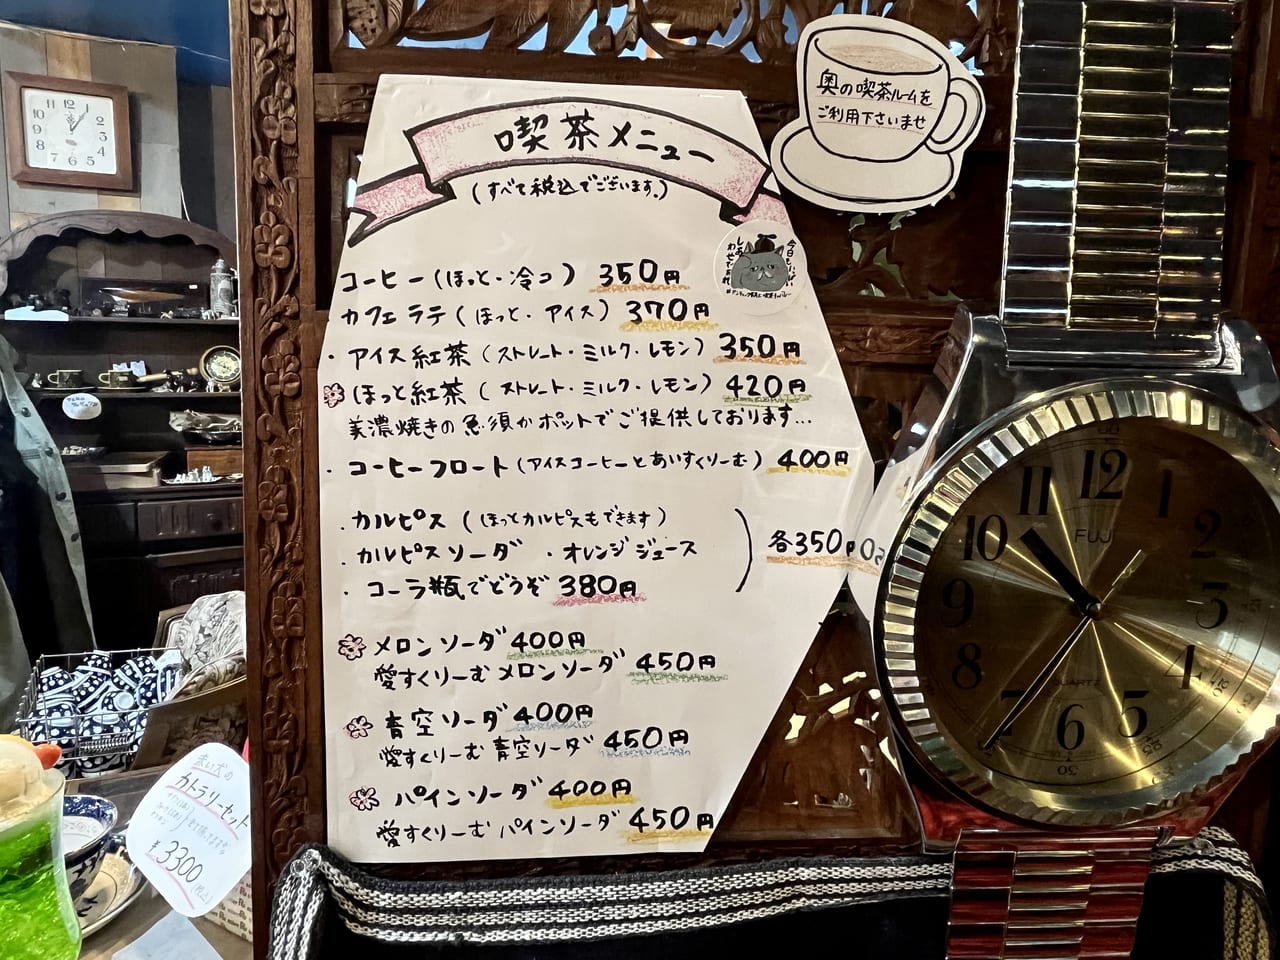 奥の喫茶ルームを
ご利用下さいませ
喫茶メニュー
(すべて税込でございます。)
コーヒー(ほっと・冷コ) 350円
カフェラテ(ほっと・アイス) 370円
・アイス紅茶(ストレート・ミルク・レモン) 350円
ほっと紅茶(ストレート・ミルク・レモン) 420円
美濃焼きの急須かポットでご提供しております…
・コーヒーフロート(アイスコーヒーとあいすくりーむ) 400円
・カルピス(ほっとカルピスもできます)
・カルピスソーダ ・オレンジジュース
各350円
・コーラ瓶でどうぞ 380円
メロンソーダ 400円
愛すくりーむメロンソーダ 450円
青空ソーダ 400円
愛すくりーむ青空ソーダ 450円
パインソーダ 400円
愛すくりーむパインソーダ 450円
カトラリーセット
¥3300
(税込)
12
1
2
3
4
5
6
7
8
9
10
11
FUJI
QUARTZ